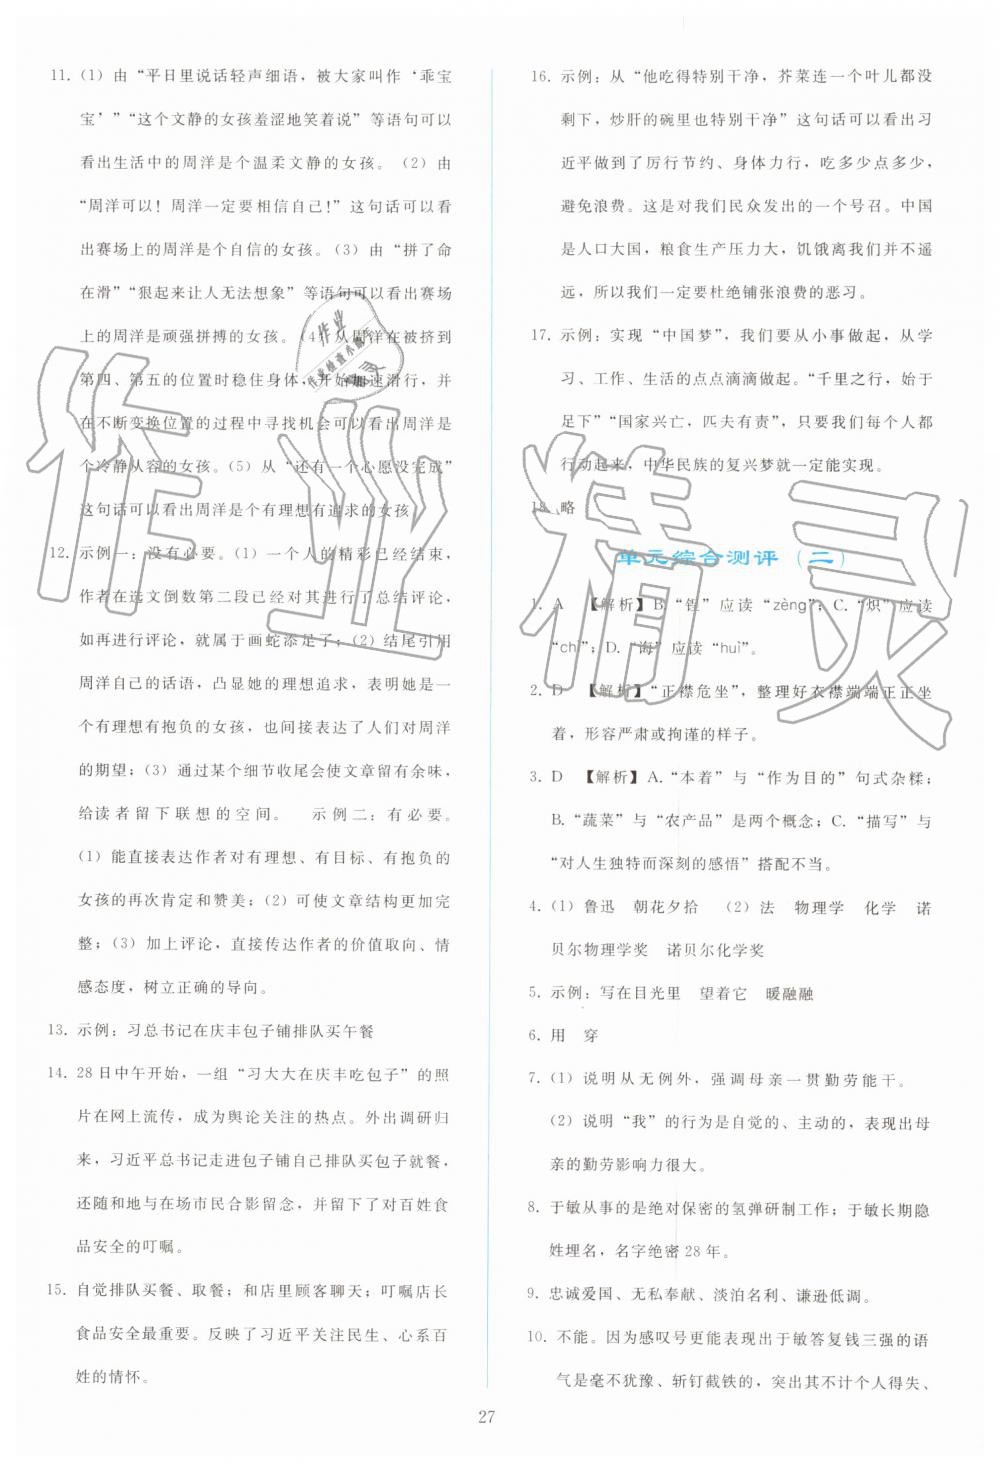 11. (1) 由“平日里说话轻声细语，被大家叫作‘乖宝
宝’”“这个文静的女孩羞涩地笑着说”等语句可以
看出生活中的周洋是个温柔文静的女孩。(2) 由
“周洋可以！周洋一定要相信自己！”这句话可以看
出赛场上的周洋是个自信的女孩。(3) 由“拼了命
在滑”“狠起来让人无法想象”等语句可以看出赛场
上的周洋是顽强拼搏的女孩。(4) 从周洋在被挤到
第四、第五的位置时稳住身体，开始加速滑行，并
在不断变换位置的过程中寻找机会可以看出周洋是
个冷静从容的女孩。(5) 从“还有一个心愿没完成”
这句话可以看出周洋是个有理想有追求的女孩
12. 示例一：没有必要。(1) 一个人的精彩已经结束，
作者在选文倒数第二段已经对其进行了总结评论，
如再进行评论，就属于画蛇添足了；(2) 结尾引用
周洋自己的话语，凸显她的理想追求，表明她是一
个有理想有抱负的女孩，也间接表达了人们对周洋
的期望；(3) 通过某个细节收尾会使文章留有余味，
给读者留下联想的空间。 示例二：有必要。
(1) 能直接表达作者对有理想、有目标、有抱负的
女孩的再次肯定和赞美；(2) 可使文章结构更加完
整；(3) 加上评论，直接传达作者的价值取向、情
感态度，树立正确的导向。
13. 示例：习总书记在庆丰包子铺排队买午餐
14. 28日中午开始，一组“习大大在庆丰吃包子”的照
片在网上流传，成为舆论关注的热点。外出调研归
来，习近平总书记走进包子铺自己排队买包子就餐，
还随和地与在场市民合影留念，并留下了对百姓食
品安全的叮嘱。
15. 自觉排队买餐、取餐；和店里顾客聊天；叮嘱店长
食品安全最重要。反映了习近平关注民生、心系百
姓的情怀。
16. 示例：从“他吃得特别干净，芥菜连一个叶儿都没
剩下，炒肝的碗里也特别干净”这句话可以看出习
近平做到了厉行节约、身体力行，吃多少点多少，
避免浪费。这是对我们民众发出的一个号召。中国
是人口大国，粮食生产压力大，饥饿离我们并不遥
远，所以我们一定要杜绝铺张浪费的恶习。
17. 示例：实现“中国梦”，我们要从小事做起，从学
习、工作、生活的点点滴滴做起。“千里之行，始于
足下”“国家兴亡，匹夫有责”，只要我们每个人都
行动起来，中华民族的复兴梦就一定能实现。
18. 略
单元综合测评（二）
1. A 【解析】B.“锃”应读“zèng”；C.“炽”应读
“chì”；D.“诲”应读“huì”。
2. D 【解析】“正襟危坐”，整理好衣襟端端正正坐
着，形容严肃或拘谨的样子。
3. D 【解析】A.“本着”与“作为目的”句式杂糅；
B.“蔬菜”与“农产品”是两个概念；C.“描写”与
“对人生独特而深刻的感悟”搭配不当。
4. (1) 鲁迅 朝花夕拾 (2) 法 物理学 化学 诺
贝尔物理学奖 诺贝尔化学奖
5. 示例：写在目光里 望着它 暖融融
6. 用 穿
7. (1) 说明从无例外，强调母亲一贯勤劳能干。
(2) 说明“我”的行为是自觉的、主动的，表现出母
亲的勤劳影响力很大。
8. 于敏从事的是绝对保密的氢弹研制工作；于敏长期隐
姓埋名，名字绝密28年。
9. 忠诚爱国、无私奉献、淡泊名利、谦逊低调。
10. 不能。因为感叹号更能表现出于敏答复钱三强的语
气是毫不犹豫、斩钉截铁的，突出其不计个人得失、
27
作业精灵